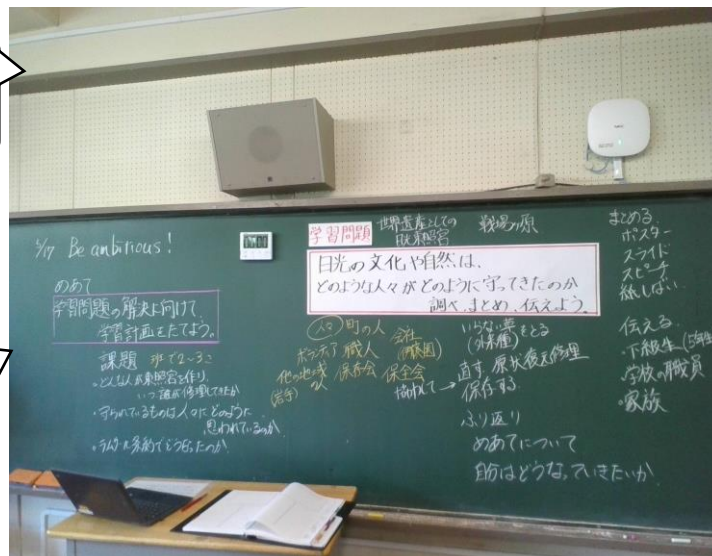 5/17 Be ambitious!
めあて
学習問題の解決に向けて、
学習計画をたてよう。
課題 班で2~3こ
・どんな人が東照宮を作り、
いつ誰が修理してきたか
・守られているものは人々にどのように
思われているか
・ラムサール条約でどうなったのか
学習問題
世界遺産としての
日光東照宮
戦場ヶ原
日光の文化や自然は、
どのような人々がどのように守ってきたのか
調べ、まとめ、伝えよう。
人々 町の人 会社
ボランティア 職人
他の地域 保存会 保全会
人
いらない草をとる
(外来種)
直す 原状復元修理
保存する
ふり返り
めあてについて
自分はどうなっていきたいか
まとめる
ポスター
スライド
スピーチ
紙しばい
伝える
・下級生(5年生
・学校の職員
・家族